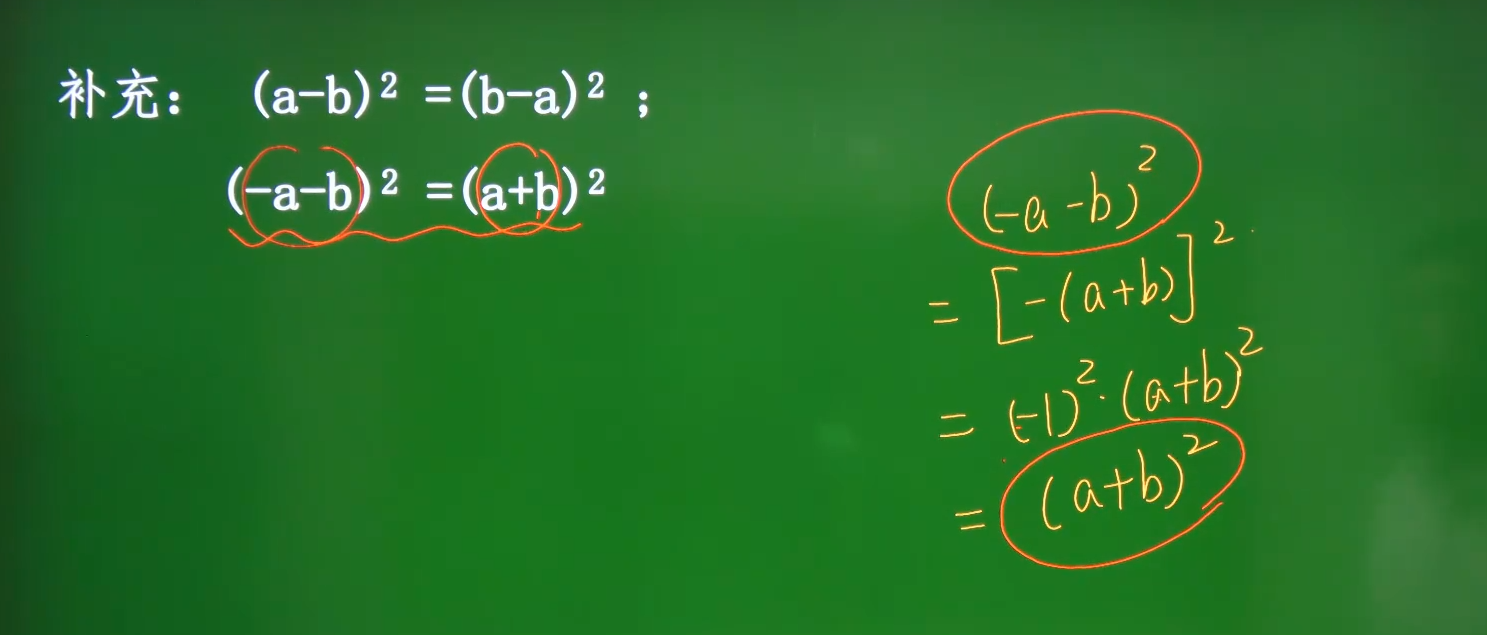 补充： (a-b)² =(b-a)² ；
(-a-b)² =(a+b)²
(-a-b)²
= [-(a+b)]²
= (-1)²·(a+b)²
= (a+b)²